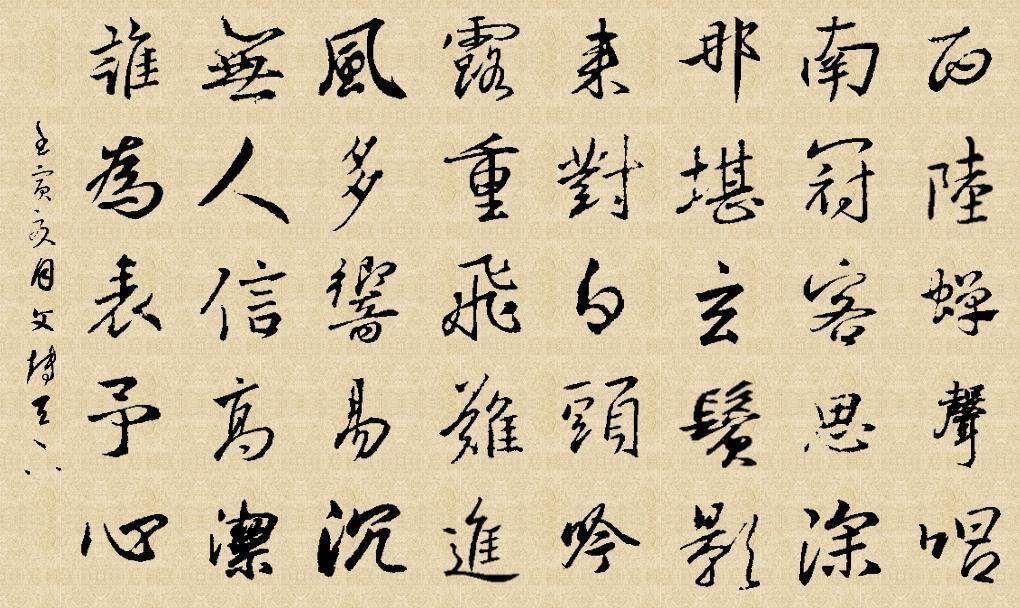 西陸蟬聲唱
南冠客思深
那堪玄鬢影
来對白頭吟
露重飛難進
風多響易沉
無人信高潔
誰為表予心
壬寅亥月文博